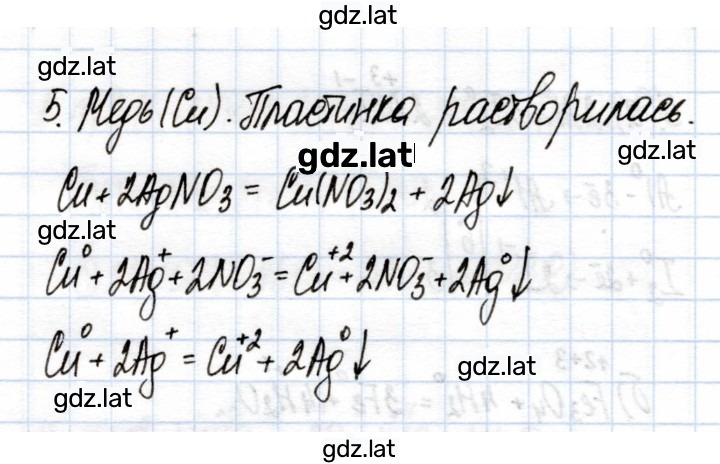 gdz.lat
gdz.lat
5. Медь (Cu). Пластинка растворилась.
gdz.lat
gdz.lat
Cu + 2AgNO₃ = Cu(NO₃)₂ + 2Ag↓
gdz.lat
Cu⁰ + 2Ag⁺ + 2NO₃⁻ = Cu⁺² + 2NO₃⁻ + 2Ag⁰↓
Cu⁰ + 2Ag⁺ = Cu⁺² + 2Ag⁰↓
gdz.lat
gdz.lat
gdz.lat